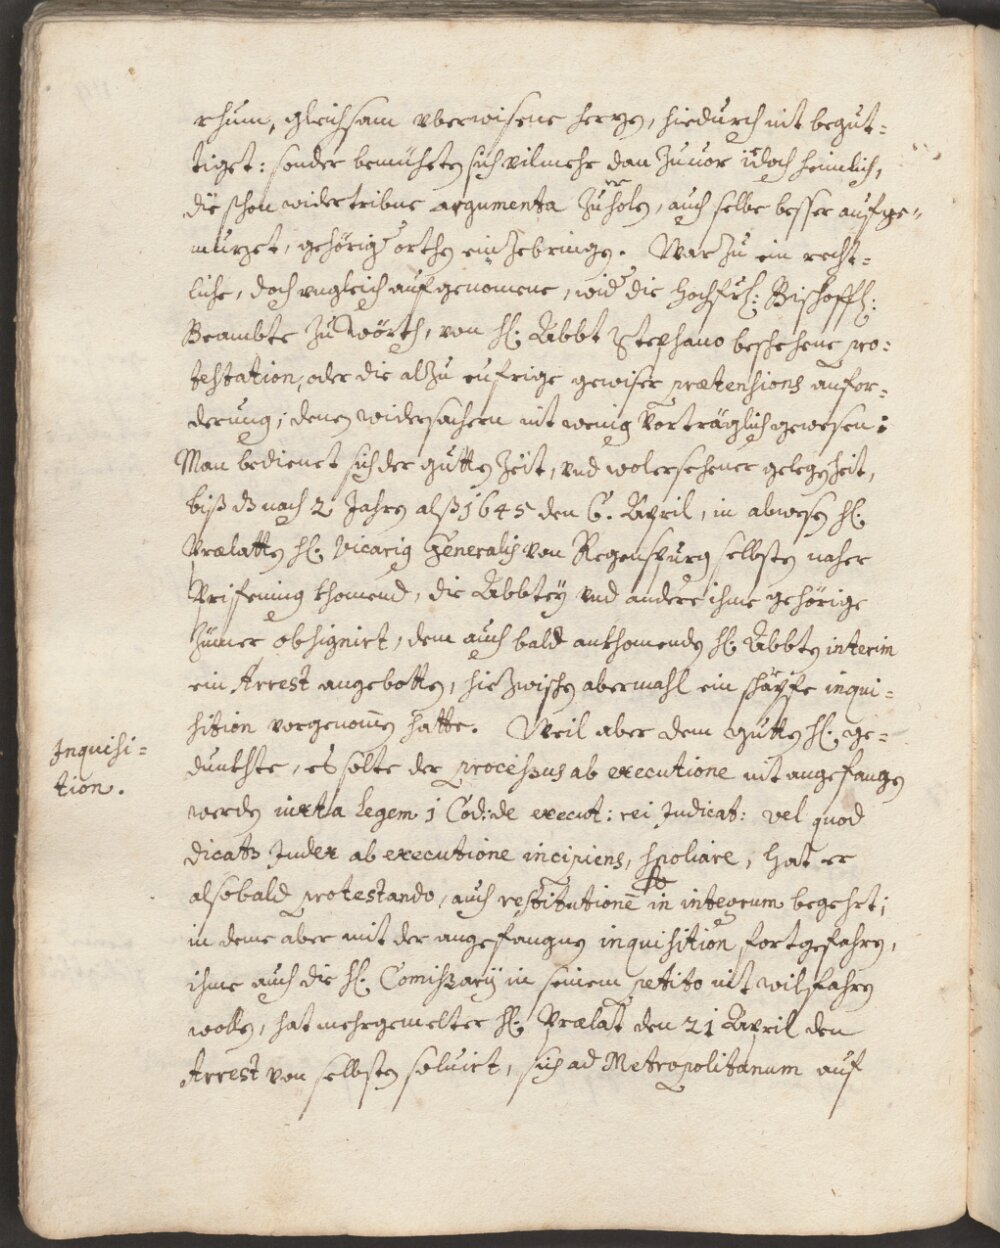 rhum, gleichsam vberwisene herzen, hiedurch nit begüt-
tiget: sonder bemüheten sich vilmehr dan zuuor iedoch heimlich,
die schon widertribne argumenta zuerholen, auch selbe besser aufge-
muzet, gehörigen orthen ein zebringen. Warzu ein recht-
liche, doch vngleich aufgenomene, wider die Hochfrl: Bischoffl:
Beambte zu Wörth, von H. Abbt Stephano beschehene pro-
testation, oder die alzu eufrige gewiser praetensions anfor-
derung, denen widersachern nit wenig vorträglich gewesen:
Man bedienet sich der gutten Zeit, vnd wolersehener gelegenheit,
biß dz nach 2 Jahren alß 1645 den 6. April, in abwesen H.
Praelatten H. Vicarig Generalis von Regenspurg selbsten naher
Prifening khomend, die Abbtey vnd andere ihme gehörige
Zimer obsignirt, dem auch bald ankhomenden H. Abbten interim
ein Arrest angebotten, hiezwischen abermahl ein scharpfe inqui-
sition vorgenommen hatte. Weil aber dem gutten H. ge-
Inquisi-
tion.
dunkhte, es solte der processus ab executione nit angefangen
werden iuxta legem 1 Cod: de execut: rei Judicat: vel quod
dicatur Judex ab executione incipiens, spoliare, hat er
alsobald protestando, auch restitutionem in integrum begehrt;
in deme aber mit der angefangnen inquisition fortgefahren,
ihme auch die H. Comissarij in seinem petito nit wilfahren
wollen, hat mehrgemelter H. Praelat den 21 April den
Arrest von selbsten soluirt, sich ad Metropolitanum auf